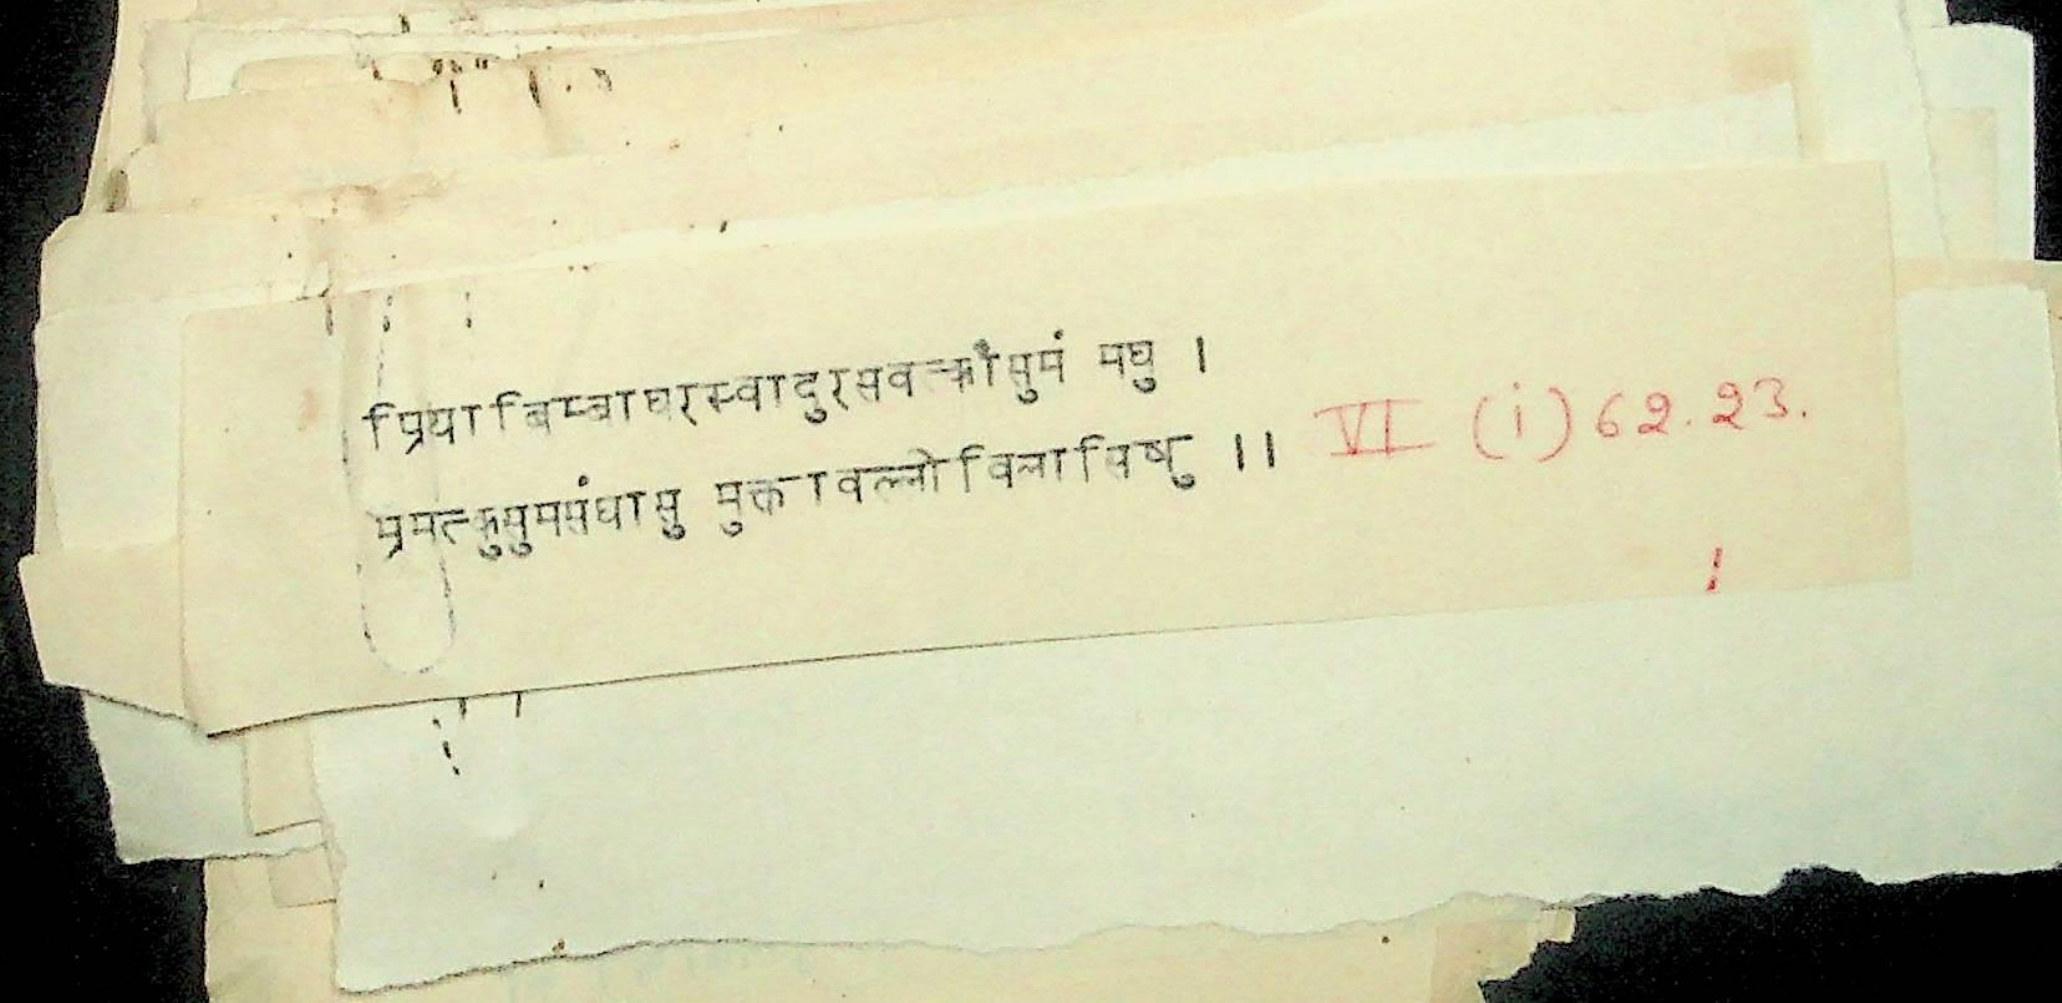 प्रियाबिम्बाधरस्वादुरसवत्कौसुमं मधु ।
भ्रमत्कुसुमसंघासु मुक्तावल्लीविलासिषु ।। VI (i) 62.23.
1